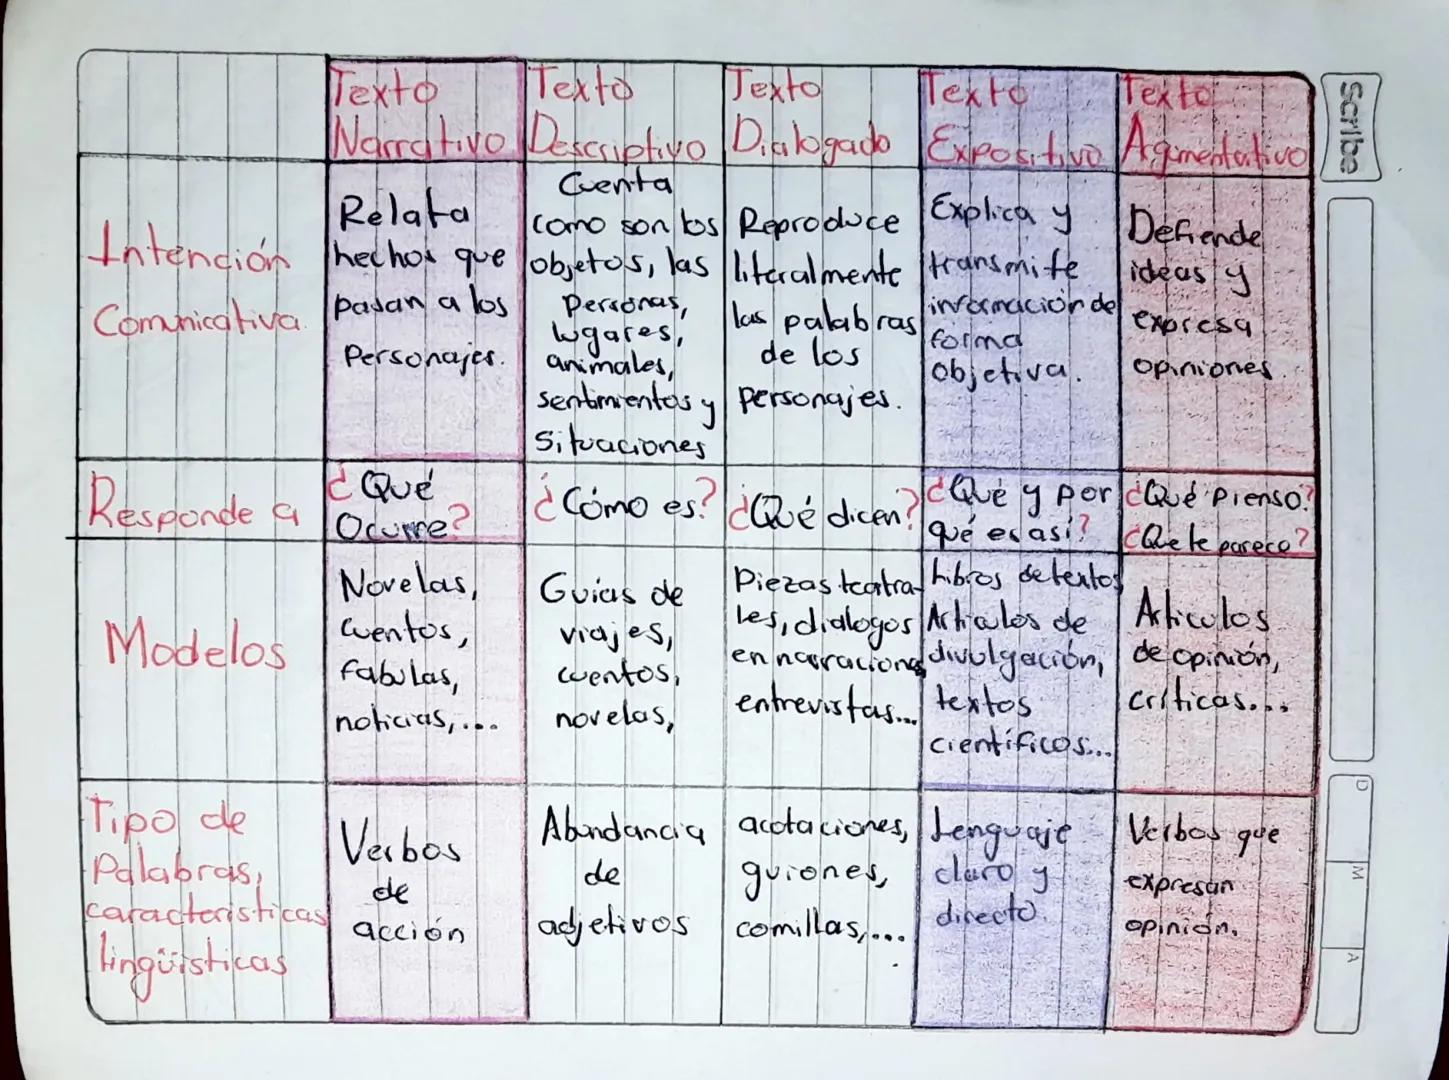 Texto
Narrativo
Texto
Descriptivo
Texto
Dialogado
Texto
Expositivo
Texto
Agumentativo
Scribe
Intención
Comunicativa.
Relata
hechos que
pasan a los
Personajes.
Cuenta
como son los
objetos, las
Personas,
lugares,
animales,
sentimientos y
Situaciones
Reproduce
literalmente
las palabras
de los
personajes.
Explica y
transmite
información de
forma
objetiva.
Defiende
ideas y
expresa
opiniones.
Responde a
¿Qué
Ocurre?
¿Cómo es?
¿Qué dicen?
¿Qué y por
qué es así?
¿Qué Pienso?
¿Que te parece?
Modelos
Novelas,
cuentos,
fabulas,
noticias,...
Guías de
viajes,
cuentos,
novelas,
Piezas teatra-
les, dialogos
en narraciones
entrevistas...
Libros de textos
Articulos de
divulgación,
textos
científicos...
Articulos
de opinión,
críticas...
Tipo de
Palabras,
caracteristicas
lingüisticas
Verbos
de
acción
Abundancia
de
adjetivos
acotaciones,
guiones,
comillas,...
Lenguaje
claro y
directo.
Verbos que
expresan
opinión.
D
M
A